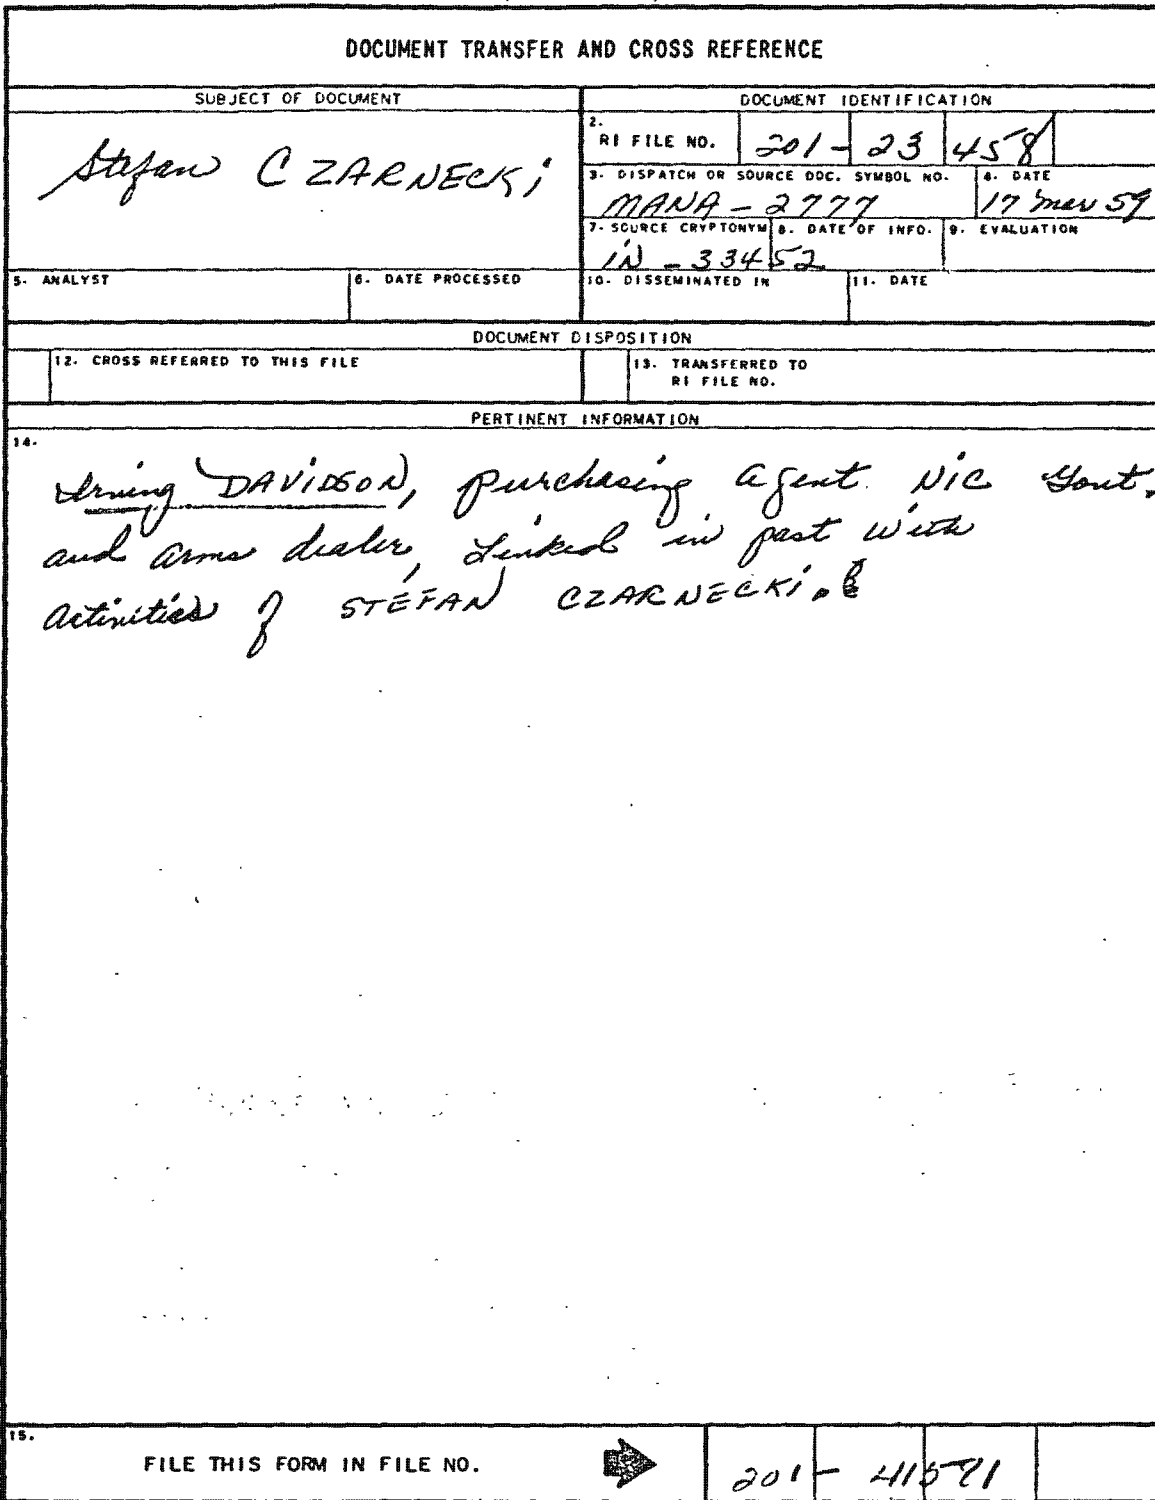 DOCUMENT TRANSFER AND CROSS REFERENCE
SUBJECT OF DOCUMENT
DOCUMENT IDENTIFICATION
Stefan CZARNECKi
2.
RI FILE NO.
201-23458
3. DISPATCH OR SOURCE DOC. SYMBOL NO.
4. DATE
MANA-2777
17 Mar 59
7. SOURCE CRYPTONYM
8. DATE OF INFO.
9. EVALUATION
IN-33452
5. ANALYST
6. DATE PROCESSED
10. DISSEMINATED IN
11. DATE
DOCUMENT DISPOSITION
12. CROSS REFERRED TO THIS FILE
13. TRANSFERRED TO
RI FILE NO.
PERTINENT INFORMATION
14.
Irving DAVIDSON, purchasing agent NIC Govt.
and arms dealer, linked in past with
activities of STEFAN CZARNECKi.
15.
FILE THIS FORM IN FILE NO.
201-41571